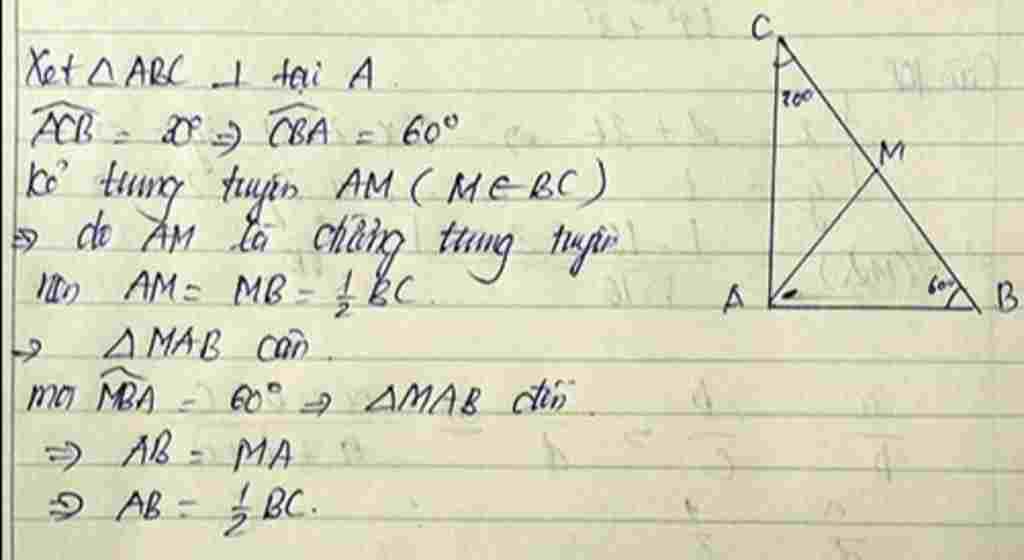 Xét △ABC ⊥ tại A.
ACB = 30° ⇒ CBA = 60°
Kẻ trung tuyến AM (M∈BC)
⇒ do AM là đường trung tuyến
nên AM = MB = 1/2 BC.
→ △MAB cân.
mà MBA = 60° ⇒ △MAB đều.
⇒ AB = MA
⇒ AB = 1/2 BC.
C
30°
M
A
60°
B